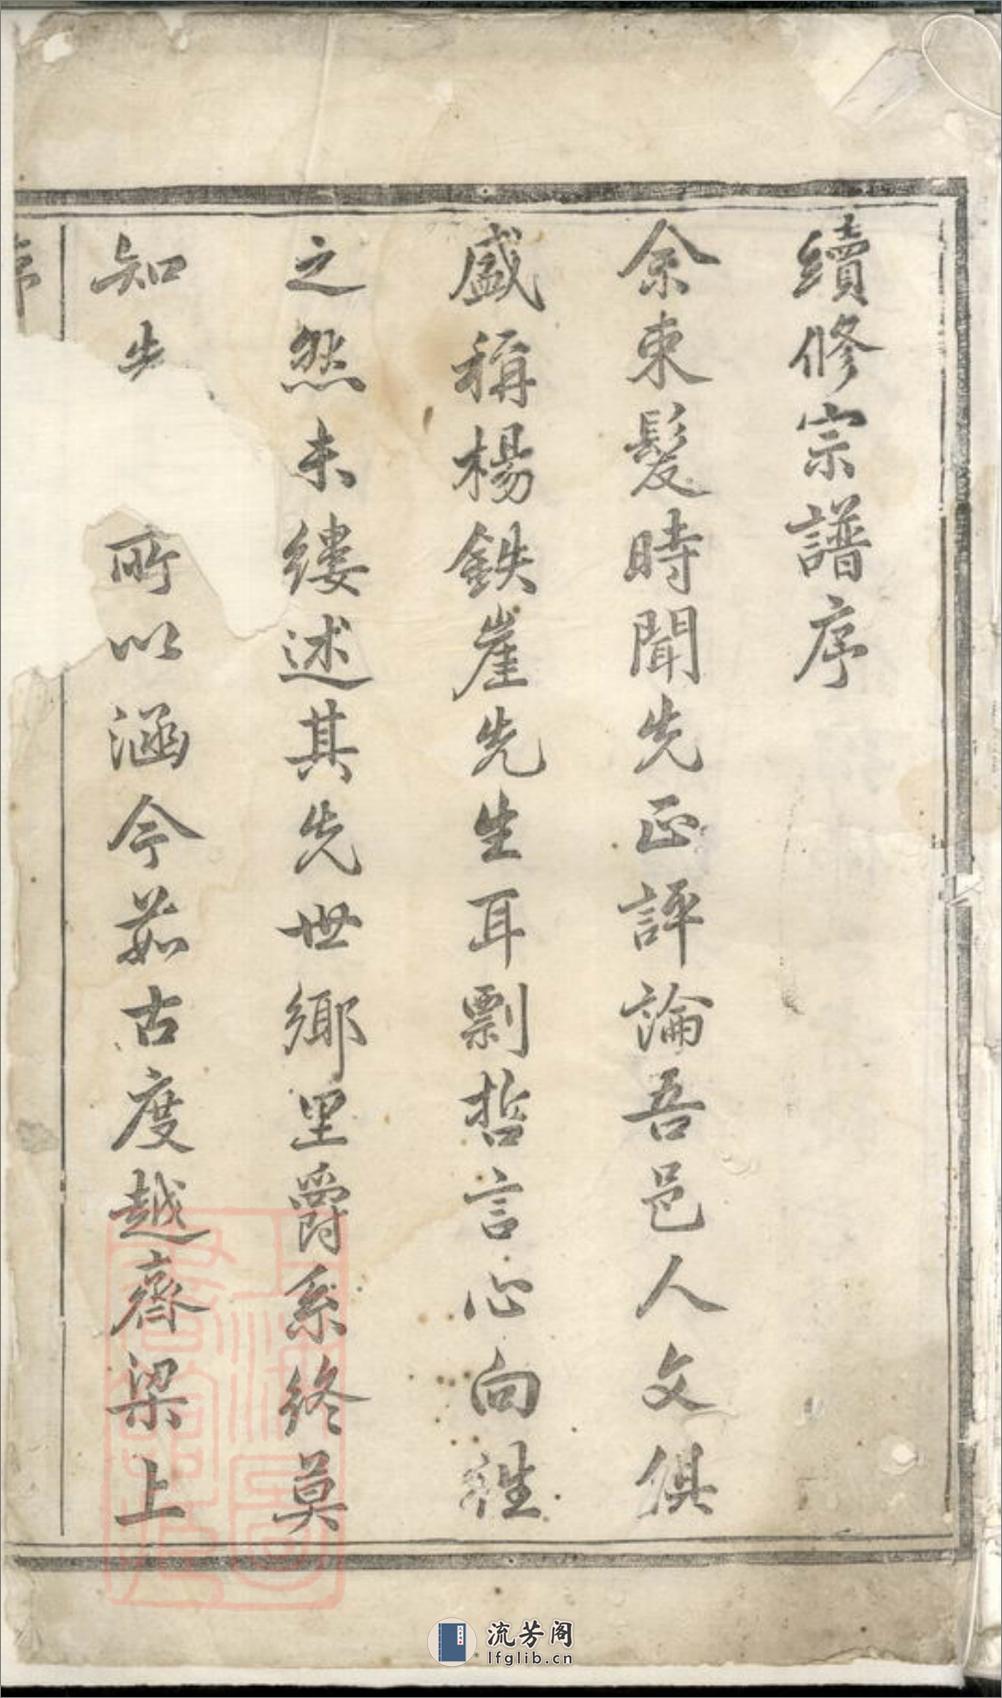 續修宗譜序
余束髮時聞先正評論吾邑人文俱
盛稱楊鉄崖先生耳剽哲言心向徃
之然未縷述其先世鄉里爵系終莫
知 所以涵今茹古度越齊梁上
序
流芳阁
lfglib.cn